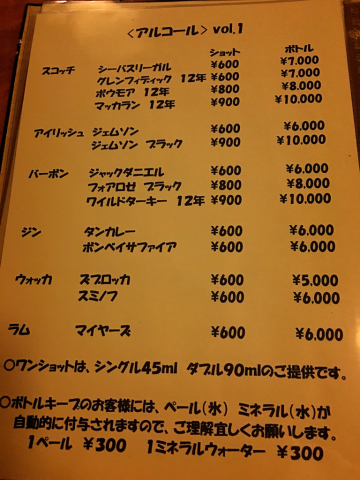 〈アルコール〉vol.1
ショット ボトル
スコッチ シーバスリーガル ¥600 ¥7.000
グレンフィディック 12年 ¥600 ¥7.000
ボウモア 12年 ¥800 ¥8.000
マッカラン 12年 ¥900 ¥10.000
アイリッシュ ジェムソン ¥600 ¥6.000
ジェムソン ブラック ¥900 ¥10.000
バーボン ジャックダニエル ¥600 ¥6.000
フォアロゼ ブラック ¥800 ¥8.000
ワイルドターキー 12年 ¥900 ¥10.000
ジン タンカレー ¥600 ¥6.000
ボンベイサファイア ¥600 ¥6.000
ウォッカ ズブロッカ ¥600 ¥5.000
スミノフ ¥600 ¥6.000
ラム マイヤーズ ¥600 ¥6.000
○ワンショットは、シングル45ml ダブル90mlのご提供です。
○ボトルキープのお客様には、ペール(氷) ミネラル(水)が
自動的に付与されますので、ご理解宜しくお願いします。
1ペール ¥300 1ミネラルウォーター ¥300